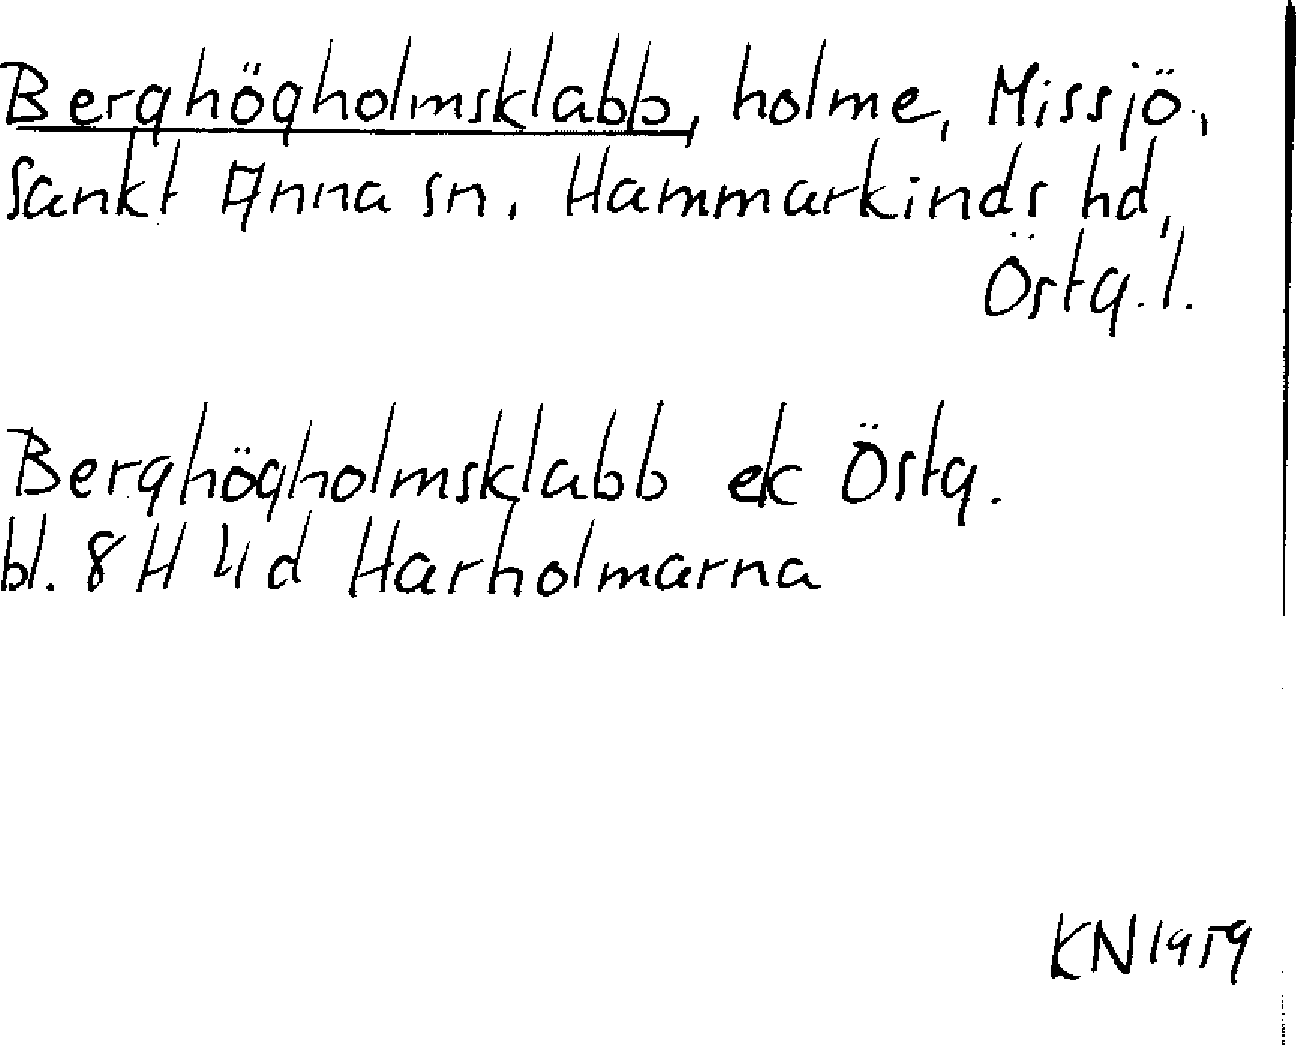 Berghögholmsklabb, holme, Missjö,
Sankt Anna sn, Hammarkinds hd,
Östg. l.
Berghögholmsklabb ek Östg.
bl. 8 H 4 d Harholmarna
KN 1959